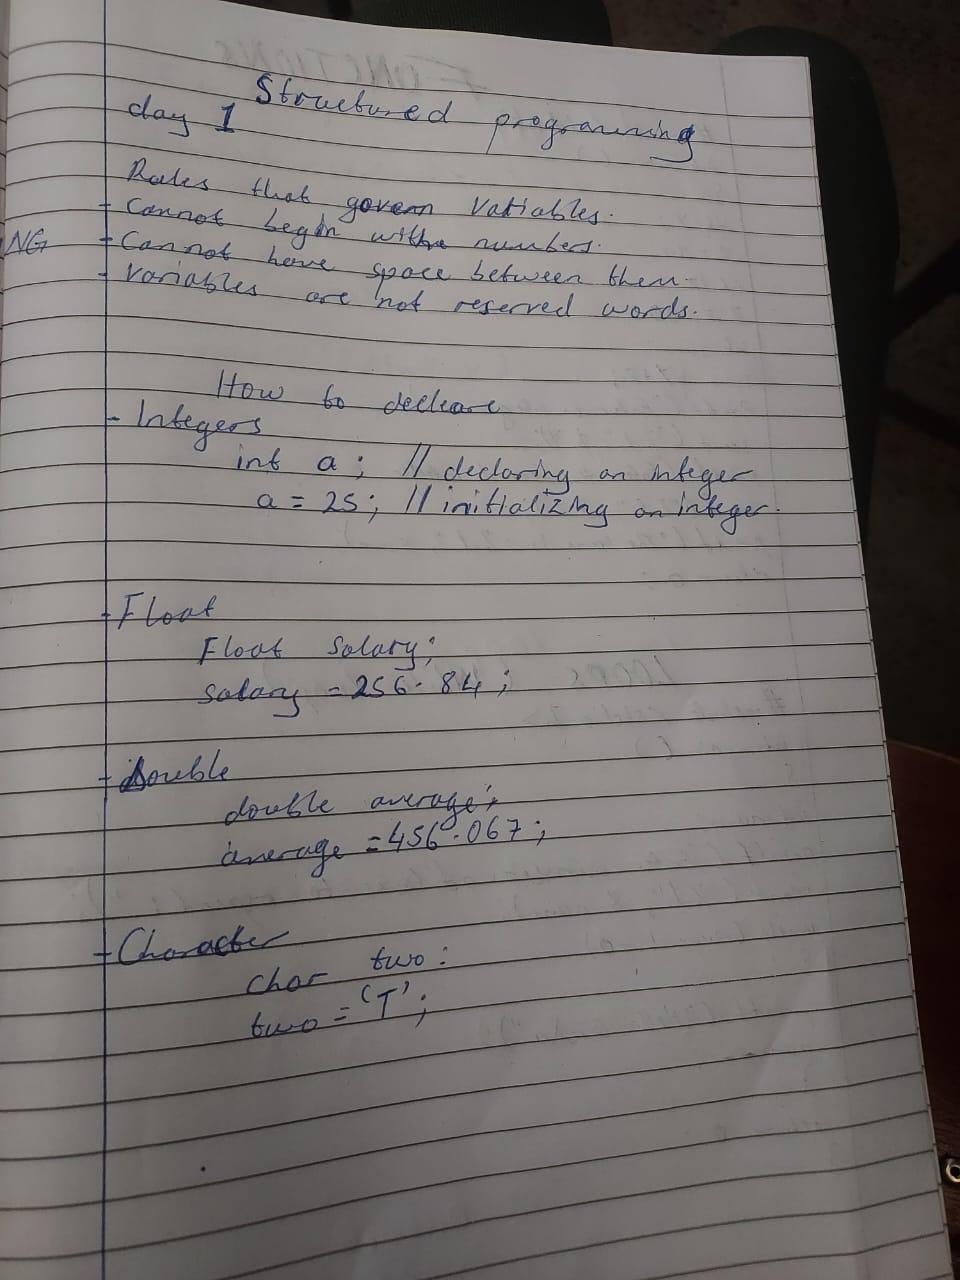 Structured programming
day 1
Rules that govern Variables.
- Cannot begin with numbers.
NG
- Cannot have space between them.
- Variables are not reserved words.
How to declare
- Integers
int a; // declaring an integer
a = 25; // initializing an integer.
- Float
Float Salary;
Salary = 256.84;
- Double
double average;
average = 456.067;
- Character
char two:
two = 'T';